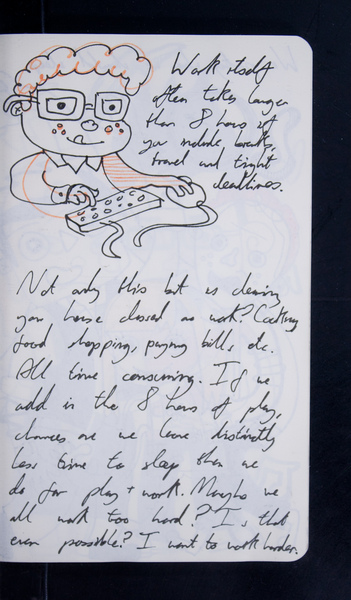 Work itself
often takes longer
than 8 hours if
you include breaks,
travel and tight
deadlines.
Not only this but is cleaning
your house classed as work? Cooking
food shopping, paying bills, etc.
All time consuming. If we
add in the 8 hours of play,
chances are we leave distinctly
less time to sleep than we
do for play + work. Maybe we
all work too hard? Is that
even possible? I want to work harder.